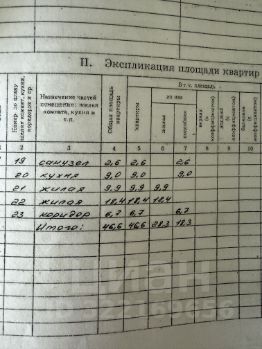 II. Экспликация площади квартир
Назначение частей помещения: жилая комната, кухня и т.п.
Общая площадь квартиры
В т. ч. площадь
квартиры
из нее
жилая
2 3 4 5 6 7 8 9 10
19 санузел 2,6 2,6 2,6
20 кухня 9,0 9,0 9,0
21 жилая 9,9 9,9 9,9
22 жилая 18,4 18,4 18,4
23 коридор 6,7 6,7 6,7
Итого: 46,6 46,6 28,3 18,3
ЦИАН